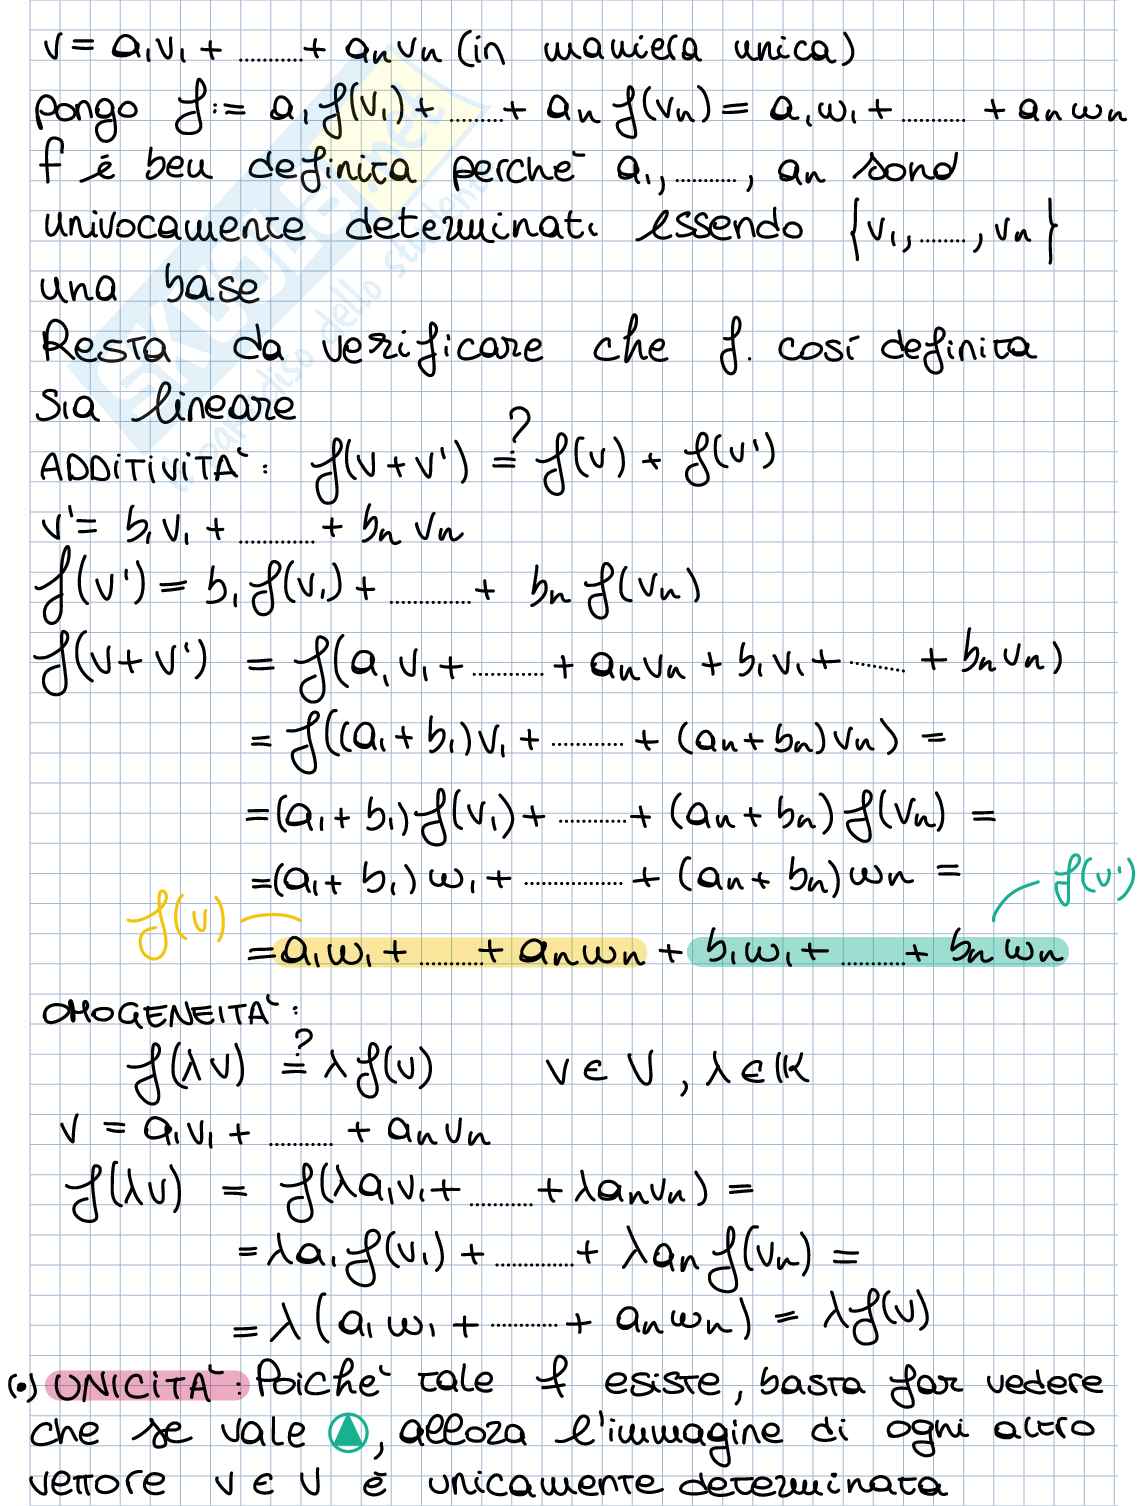 v = a₁v₁ + ........... + aₙvₙ (in maniera unica)
pongo f := a₁f(v₁) + ......... + aₙf(vₙ) = a₁w₁ + ........... + aₙwₙ
f è ben definita perchè a₁, ..........., aₙ sono
univocamente determinati essendo {v₁, ........, vₙ}
una base
Resta da verificare che f. così definita
sia lineare
ADDITIVITA': f(v + v') ?= f(v) + f(v')
v' = b₁v₁ + ............. + bₙvₙ
f(v') = b₁f(v₁) + .............. + bₙf(vₙ)
f(v + v') = f(a₁v₁ + ............ + aₙvₙ + b₁v₁ + .......... + bₙvₙ)
= f((a₁ + b₁)v₁ + ............ + (aₙ + bₙ)vₙ) =
= (a₁ + b₁)f(v₁) + ............ + (aₙ + bₙ)f(vₙ) =
= (a₁ + b₁)w₁ + ................. + (aₙ + bₙ)wₙ =
f(v) f(v')
= a₁w₁ + ........... + aₙwₙ + b₁w₁ + ........... + bₙwₙ
OMOGENEITA':
f(λv) ?= λf(v) v ∈ V, λ ∈ K
v = a₁v₁ + ........... + aₙvₙ
f(λv) = f(λa₁v₁ + ........... + λaₙvₙ) =
= λa₁f(v₁) + .............. + λaₙf(vₙ) =
= λ(a₁w₁ + ............ + aₙwₙ) = λf(v)
(•) UNICITA': Poichè tale f esiste, basta far vedere
che se vale ▲, allora l'immagine di ogni altro
vettore v ∈ V è unicamente determinata
SKUOLA.net
il paradiso dello studente